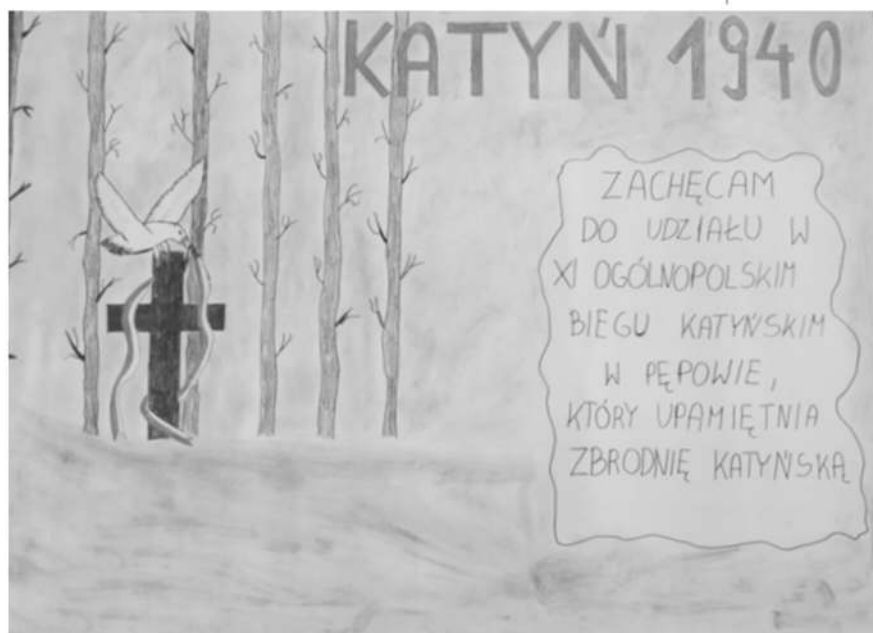 KATYŃ 1940
ZACHĘCAM
DO UDZIAŁU W
XI OGÓLNOPOLSKIM
BIEGU KATYŃSKIM
W PĘPOWIE,
KTÓRY UPAMIĘTNIA
ZBRODNIĘ KATYŃSKĄ